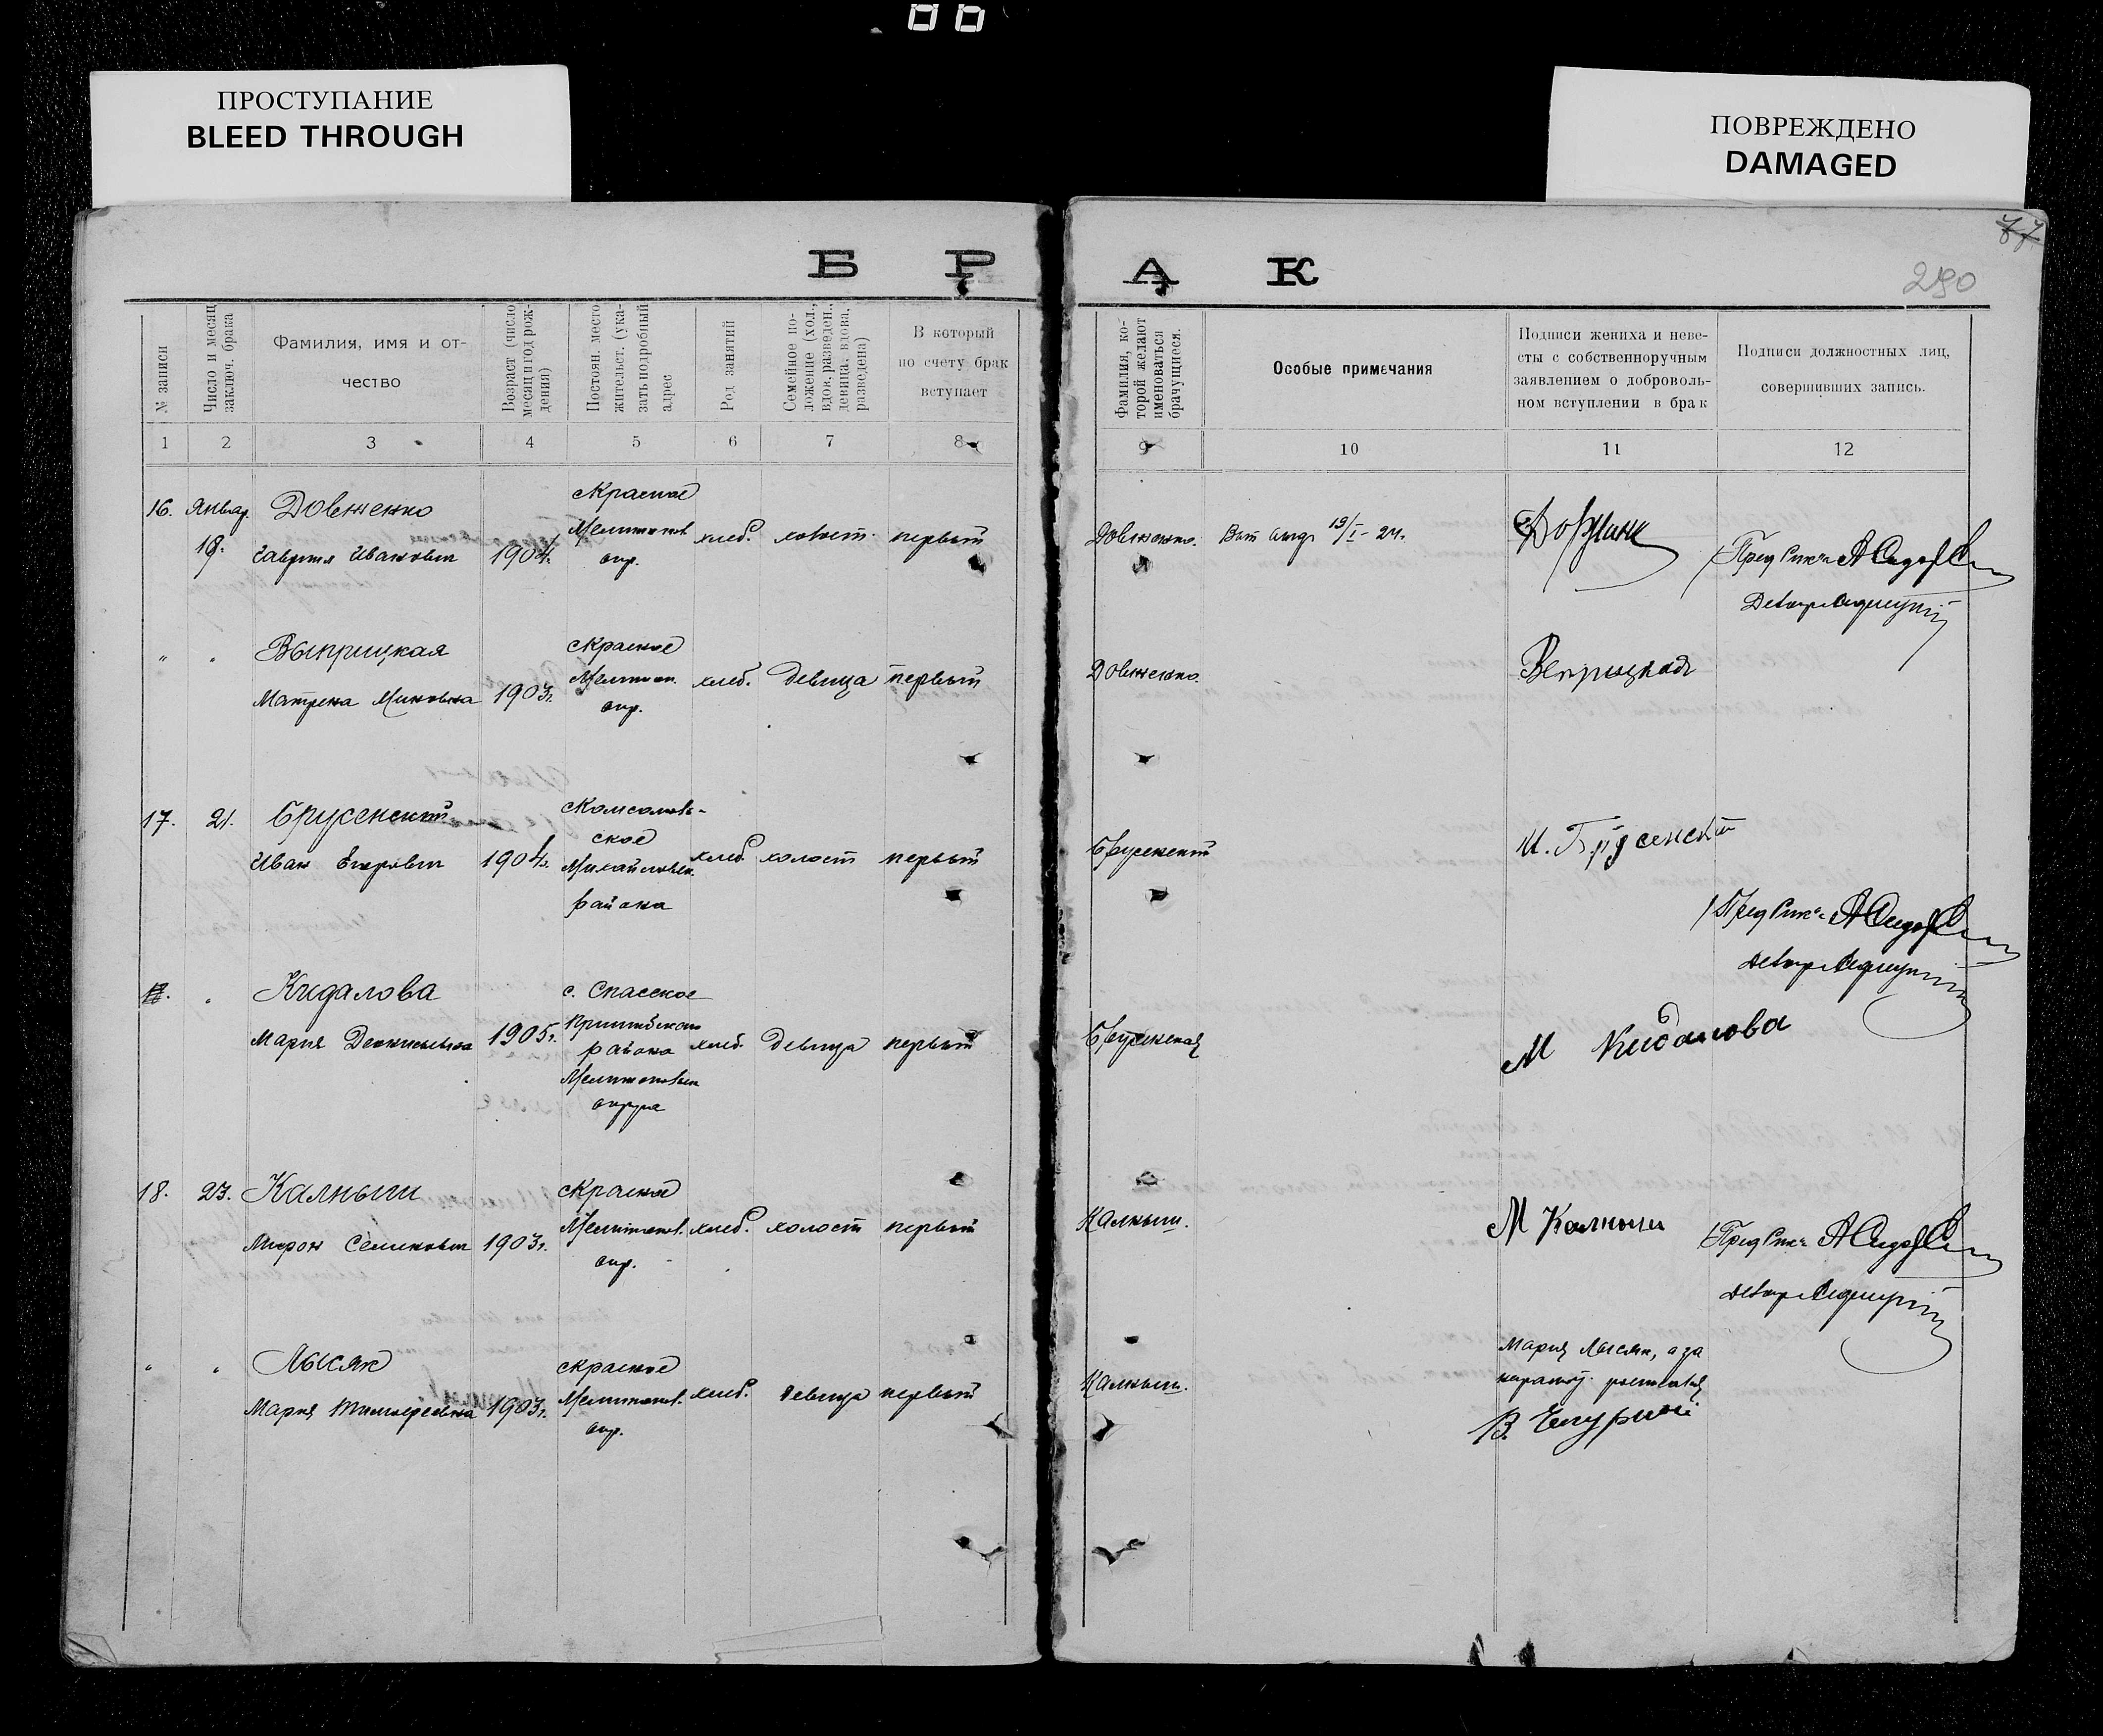 ПРОСТУПАНИЕ
BLEED THROUGH
ПОВРЕЖДЕНО
DAMAGED
77
290
Б Р А К
№ записи
Число и месяц
заключ. брака
Фамилия, имя и от-
чество
Возраст (число
месяц и год рож-
дения)
Постоян. место
жительст. (ука-
зать подробный
адрес
Род занятий
Семейное по-
ложение (хол.,
вдов. разведен.,
девица, вдова,
разведена)
В который
по счету брак
вступает
Фамилия, ко-
торой желают
именоваться
брачущиеся.
Особые примечания
Подписи жениха и неве-
сты с собственноручным
заявлением о доброволь-
ном вступлении в брак
Подписи должностных лиц,
совершивших запись.
1 2 3 4 5 6 7 8 9 10 11 12
16. Январ. 18. Довженко
Гавриил Иванович 1904г.
с Красное
Мелитопов.
окр.
хлеб. холост. первый
Довженко.
13/I-24.
Пред
Выприцкая
Матрена 1903г.
с Красное
Мелитоп.
окр.
хлеб. девица первый
Довженко.
17. 21. Брусенский
Иван Егорович 1904г.
с Комсомоль-
ское
Михайловск.
района
хлеб. холост первый
Брусенский
И. Брусенский
Пред
Кидалова
Мария Денисьевна 1905г.
с. Спасское
района
Мелитопольск
округа
хлеб. девица первый
Брусенская
М Кидалова
18. 23. Калныш
Мирон Семенович 1903г.
с Красное
Мелитопол.
окр.
хлеб. холост первый
Калныш.
М Калныш
Пред
Лысяк
Мария Тимофеевна 1903г.
с Красное
Мелитопол.
окр.
хлеб. девица первый
Калныш.
Мария Лысяк, а за
В.